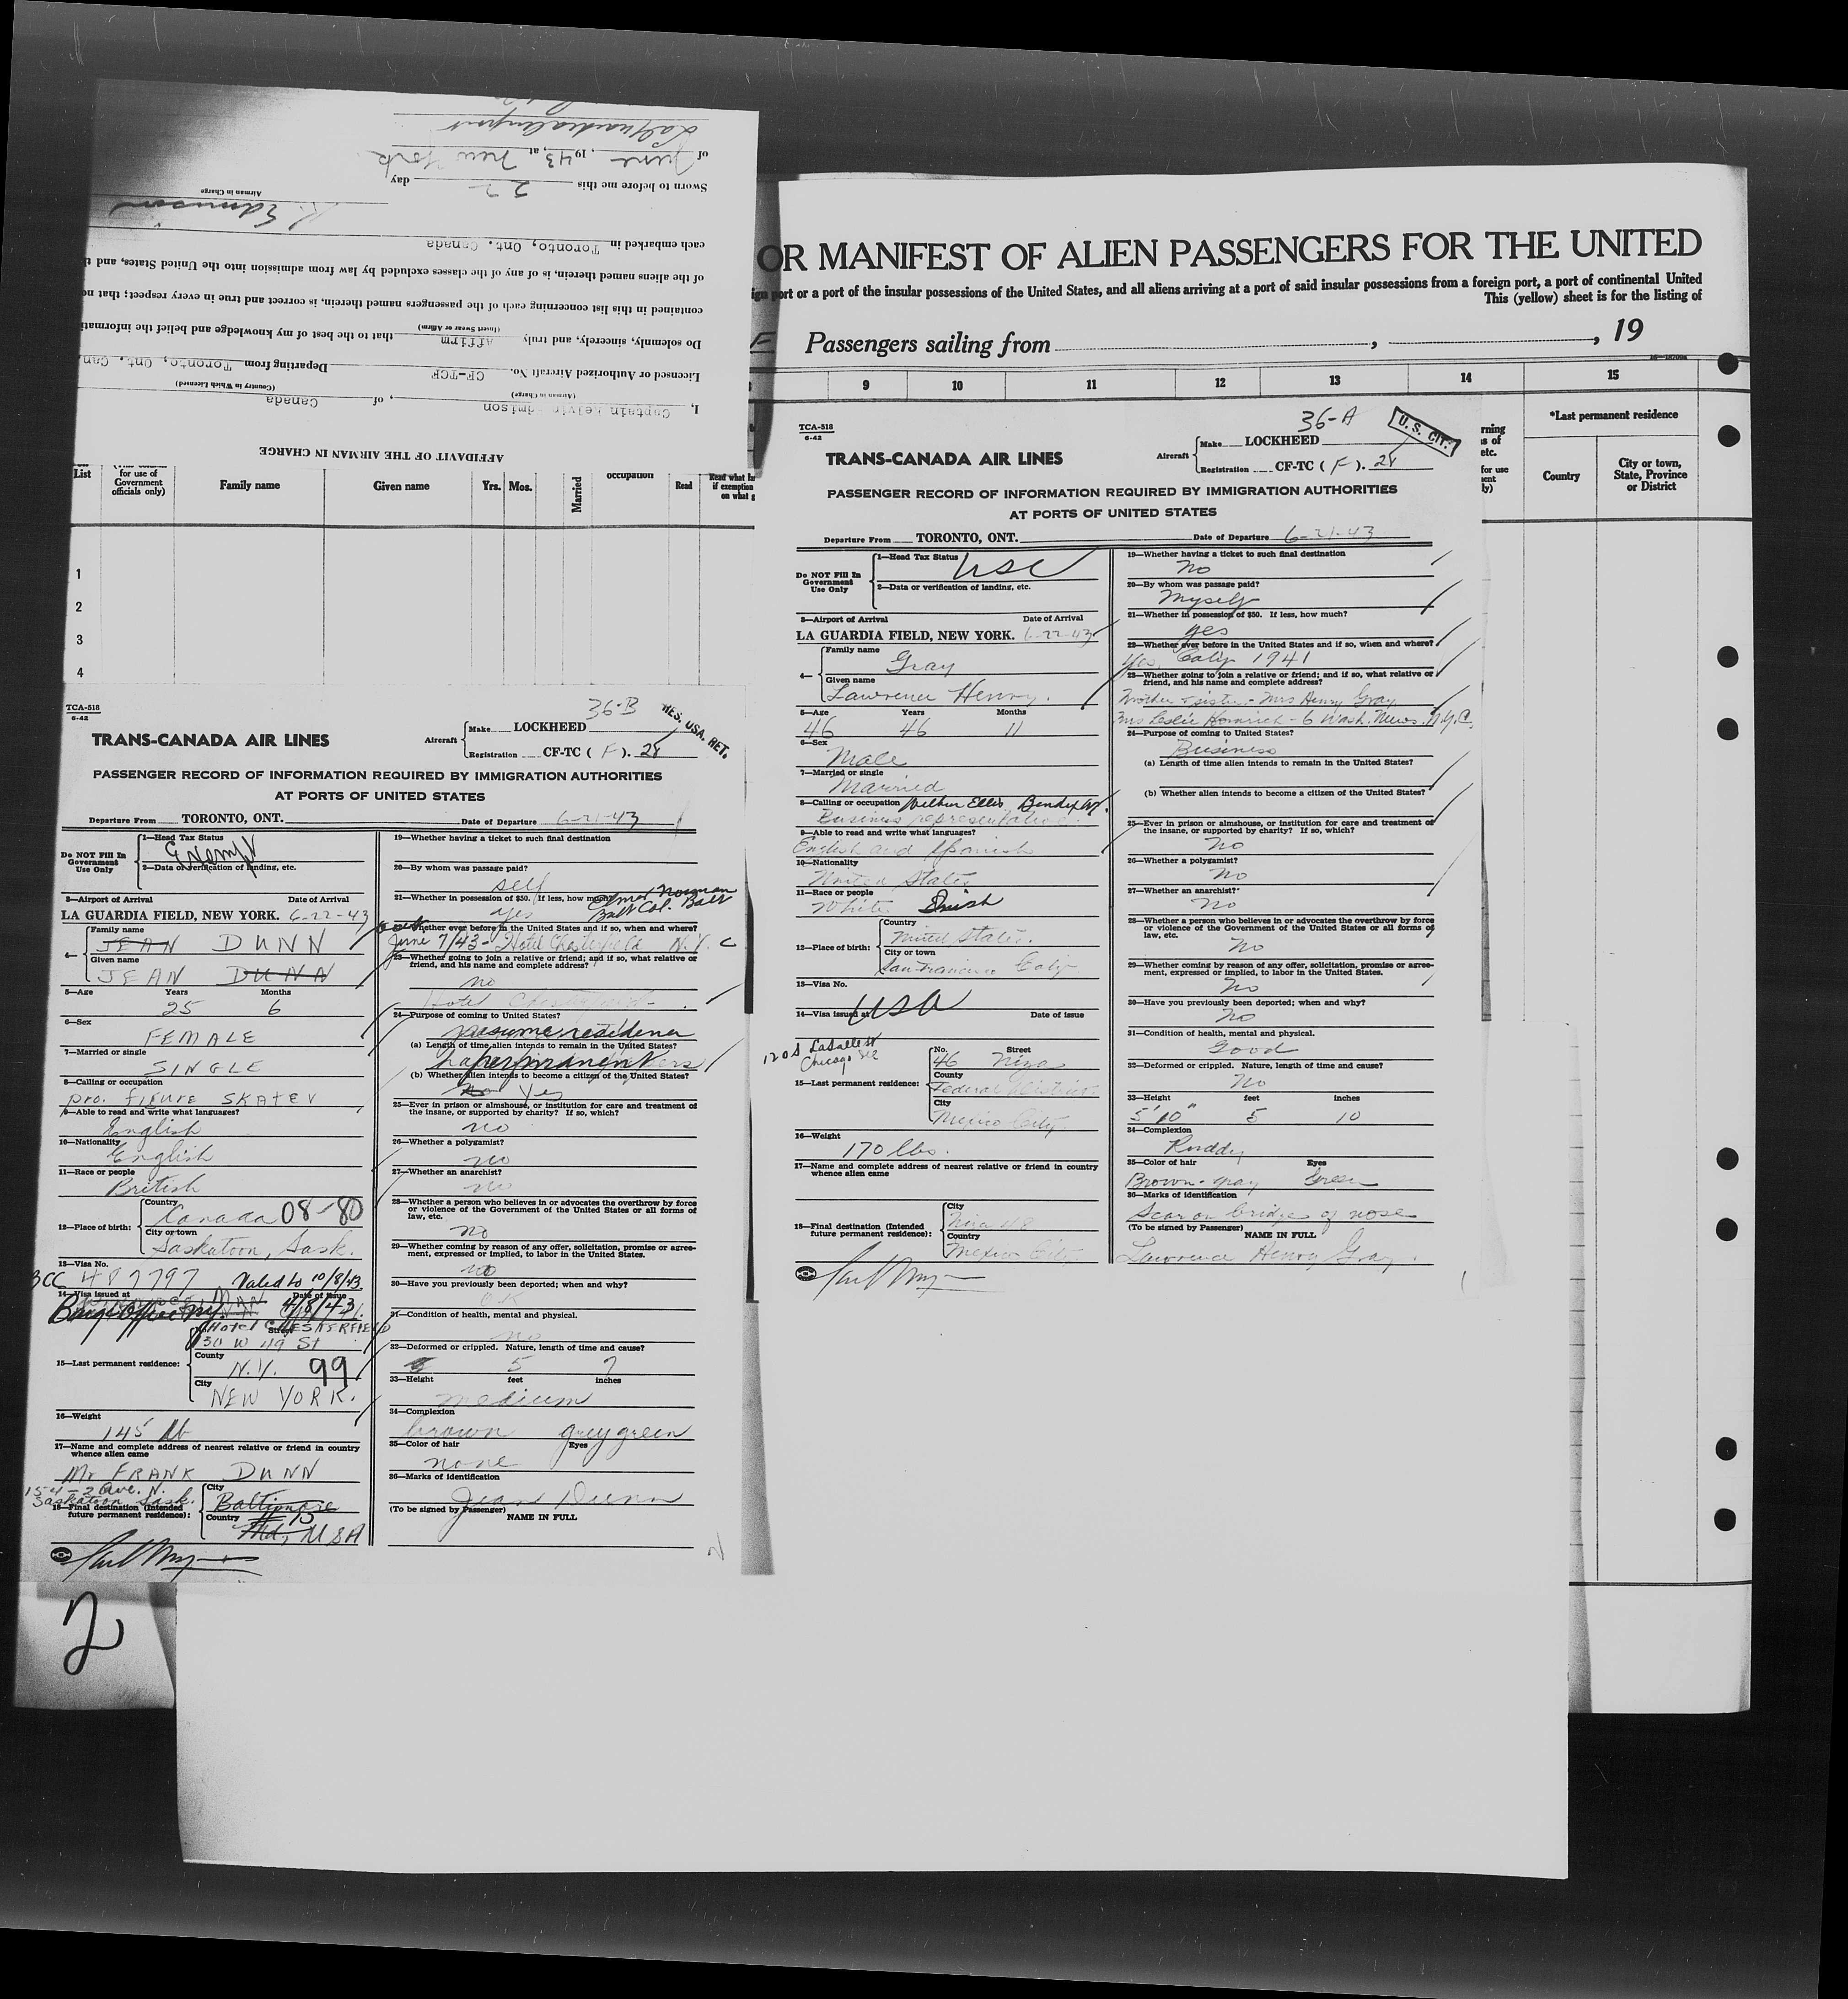 OR MANIFEST OF ALIEN PASSENGERS FOR THE UNITED
ign port or a port of the insular possessions of the United States, and all aliens arriving at a port of said insular possessions from a foreign port, a port of continental United
This (yellow) sheet is for the listing of
Passengers sailing from , , 19
9 10 11 12 13 14 15
*Last permanent residence
Country
City or town, State, Province or District
AFFIDAVIT OF THE AIRMAN IN CHARGE
I, Captain Kelvin Edmison, of Canada
(Airman in Charge) (Country in Which Licensed)
Licensed or Authorized Aircraft No. CF-TCF Departing from Toronto, Ont. Can.
Do solemnly, sincerely, and truly Affirm that to the best of my knowledge and belief the informati
(Insert Swear or Affirm)
contained in this list concerning each of the passengers named therein, is correct and true in every respect; that no
of the aliens named therein, is of any of the classes excluded by law from admission into the United States, and th
each embarked in Toronto, Ont. Canada
K. Edmison
Airman in Charge
Sworn to before me this 22 day
of June, 1943, at New York
LaGuardia Airport
List
for use of Government officials only)
Family name Given name Yrs. Mos. Married occupation Read
Read what la
if exemption
on what g
1
2
3
4
TCA-518
6-42
36-B
RES. USA. RET.
TRANS-CANADA AIR LINES
Aircraft Make LOCKHEED
Registration CF-TC ( F ). 28
PASSENGER RECORD OF INFORMATION REQUIRED BY IMMIGRATION AUTHORITIES
AT PORTS OF UNITED STATES
Departure From TORONTO, ONT. Date of Departure 6-21-43
Do NOT Fill In Government Use Only
1—Head Tax Status
Exempt
2—Data or verification of landing, etc.
3—Airport of Arrival Date of Arrival
LA GUARDIA FIELD, NEW YORK. 6-22-43
4— Family name
JEAN DUNN
Given name
JEAN DUNN
5—Age Years Months
25 6
6—Sex
FEMALE
7—Married or single
SINGLE
8—Calling or occupation
pro. figure skater
9—Able to read and write what languages?
English
10—Nationality
English
11—Race or people
British
12—Place of birth: Country
Canada 08-80
City or town
Saskatoon, Sask.
13—Visa No.
BCC 487797 Valid to 10/8/43
14—Visa issued at Date of issue
4/8/43
15—Last permanent residence: No. Street
Hotel CHESTERFIELD
130 W 49 St
County
N.Y. 99
City
NEW YORK.
16—Weight
145 lb
17—Name and complete address of nearest relative or friend in country whence alien came
Mr FRANK DUNN
154-2 Ave. N.
Saskatoon Sask.
18—Final destination (Intended future permanent residence):
City
Baltimore
Country
Md, USA
19—Whether having a ticket to such final destination
20—By whom was passage paid?
self
21—Whether in possession of $50. If less, how much?
yes
22—Whether ever before in the United States and if so, when and where?
June 7/43 - Hotel Chesterfield N.Y.C
23—Whether going to join a relative or friend; and if so, what relative or friend, and his name and complete address?
no
Hotel Chesterfield
24—Purpose of coming to United States?
resume residence
(a) Length of time alien intends to remain in the United States?
permanent
(b) Whether alien intends to become a citizen of the United States?
No Yes
25—Ever in prison or almshouse, or institution for care and treatment of the insane, or supported by charity? If so, which?
no
26—Whether a polygamist?
no
27—Whether an anarchist?
no
28—Whether a person who believes in or advocates the overthrow by force or violence of the Government of the United States or all forms of law, etc.
no
29—Whether coming by reason of any offer, solicitation, promise or agreement, expressed or implied, to labor in the United States.
no
30—Have you previously been deported; when and why?
OK
31—Condition of health, mental and physical.
no
32—Deformed or crippled. Nature, length of time and cause?
5 7
33—Height feet inches
medium
34—Complexion
brown grey green
35—Color of hair Eyes
none
36—Marks of identification
Jean Dunn
(To be signed by Passenger)
NAME IN FULL
2
TCA-518
6-42
36-A
U.S. CIT.
TRANS-CANADA AIR LINES
Aircraft Make LOCKHEED
Registration CF-TC ( F ). 28
PASSENGER RECORD OF INFORMATION REQUIRED BY IMMIGRATION AUTHORITIES
AT PORTS OF UNITED STATES
Departure From TORONTO, ONT. Date of Departure 6-21-43
Do NOT Fill In Government Use Only
1—Head Tax Status
USC
2—Data or verification of landing, etc.
3—Airport of Arrival Date of Arrival
LA GUARDIA FIELD, NEW YORK. 6-22-43
4— Family name
Gray
Given name
Lawrence Henry.
5—Age Years Months
46 46 11
6—Sex
Male
7—Married or single
Married
8—Calling or occupation Wilbur Ellis
Business representative
9—Able to read and write what languages?
English and Spanish
10—Nationality
United States
11—Race or people
White Irish
12—Place of birth: Country
United States.
City or town
San Francisco Calif
13—Visa No.
USA
14—Visa issued at Date of issue
120 S LaSalle St
Chicago Ill
15—Last permanent residence: No. Street
46 Niza
County
Federal District.
City
Mexico City.
16—Weight
170 lbs.
17—Name and complete address of nearest relative or friend in country whence alien came
18—Final destination (Intended future permanent residence):
City
Niza 48
Country
Mexico City
19—Whether having a ticket to such final destination
No
20—By whom was passage paid?
Myself
21—Whether in possession of $50. If less, how much?
yes
22—Whether ever before in the United States and if so, when and where?
Yes, Calif 1941
23—Whether going to join a relative or friend; and if so, what relative or friend, and his name and complete address?
Mother & sister - Mrs Henry Gray
Mrs Leslie - 6 Wash. Mews. N.Y.C.
24—Purpose of coming to United States?
Business
(a) Length of time alien intends to remain in the United States?
(b) Whether alien intends to become a citizen of the United States?
25—Ever in prison or almshouse, or institution for care and treatment of the insane, or supported by charity? If so, which?
No
26—Whether a polygamist?
No
27—Whether an anarchist?
No
28—Whether a person who believes in or advocates the overthrow by force or violence of the Government of the United States or all forms of law, etc.
No
29—Whether coming by reason of any offer, solicitation, promise or agreement, expressed or implied, to labor in the United States.
No
30—Have you previously been deported; when and why?
No
31—Condition of health, mental and physical.
Good
32—Deformed or crippled. Nature, length of time and cause?
No
33—Height feet inches
5'10" 5 10
34—Complexion
Ruddy
35—Color of hair Eyes
Brown-gray Green
36—Marks of identification
Scar on bridge of nose
(To be signed by Passenger) NAME IN FULL
Lawrence Henry Gray.